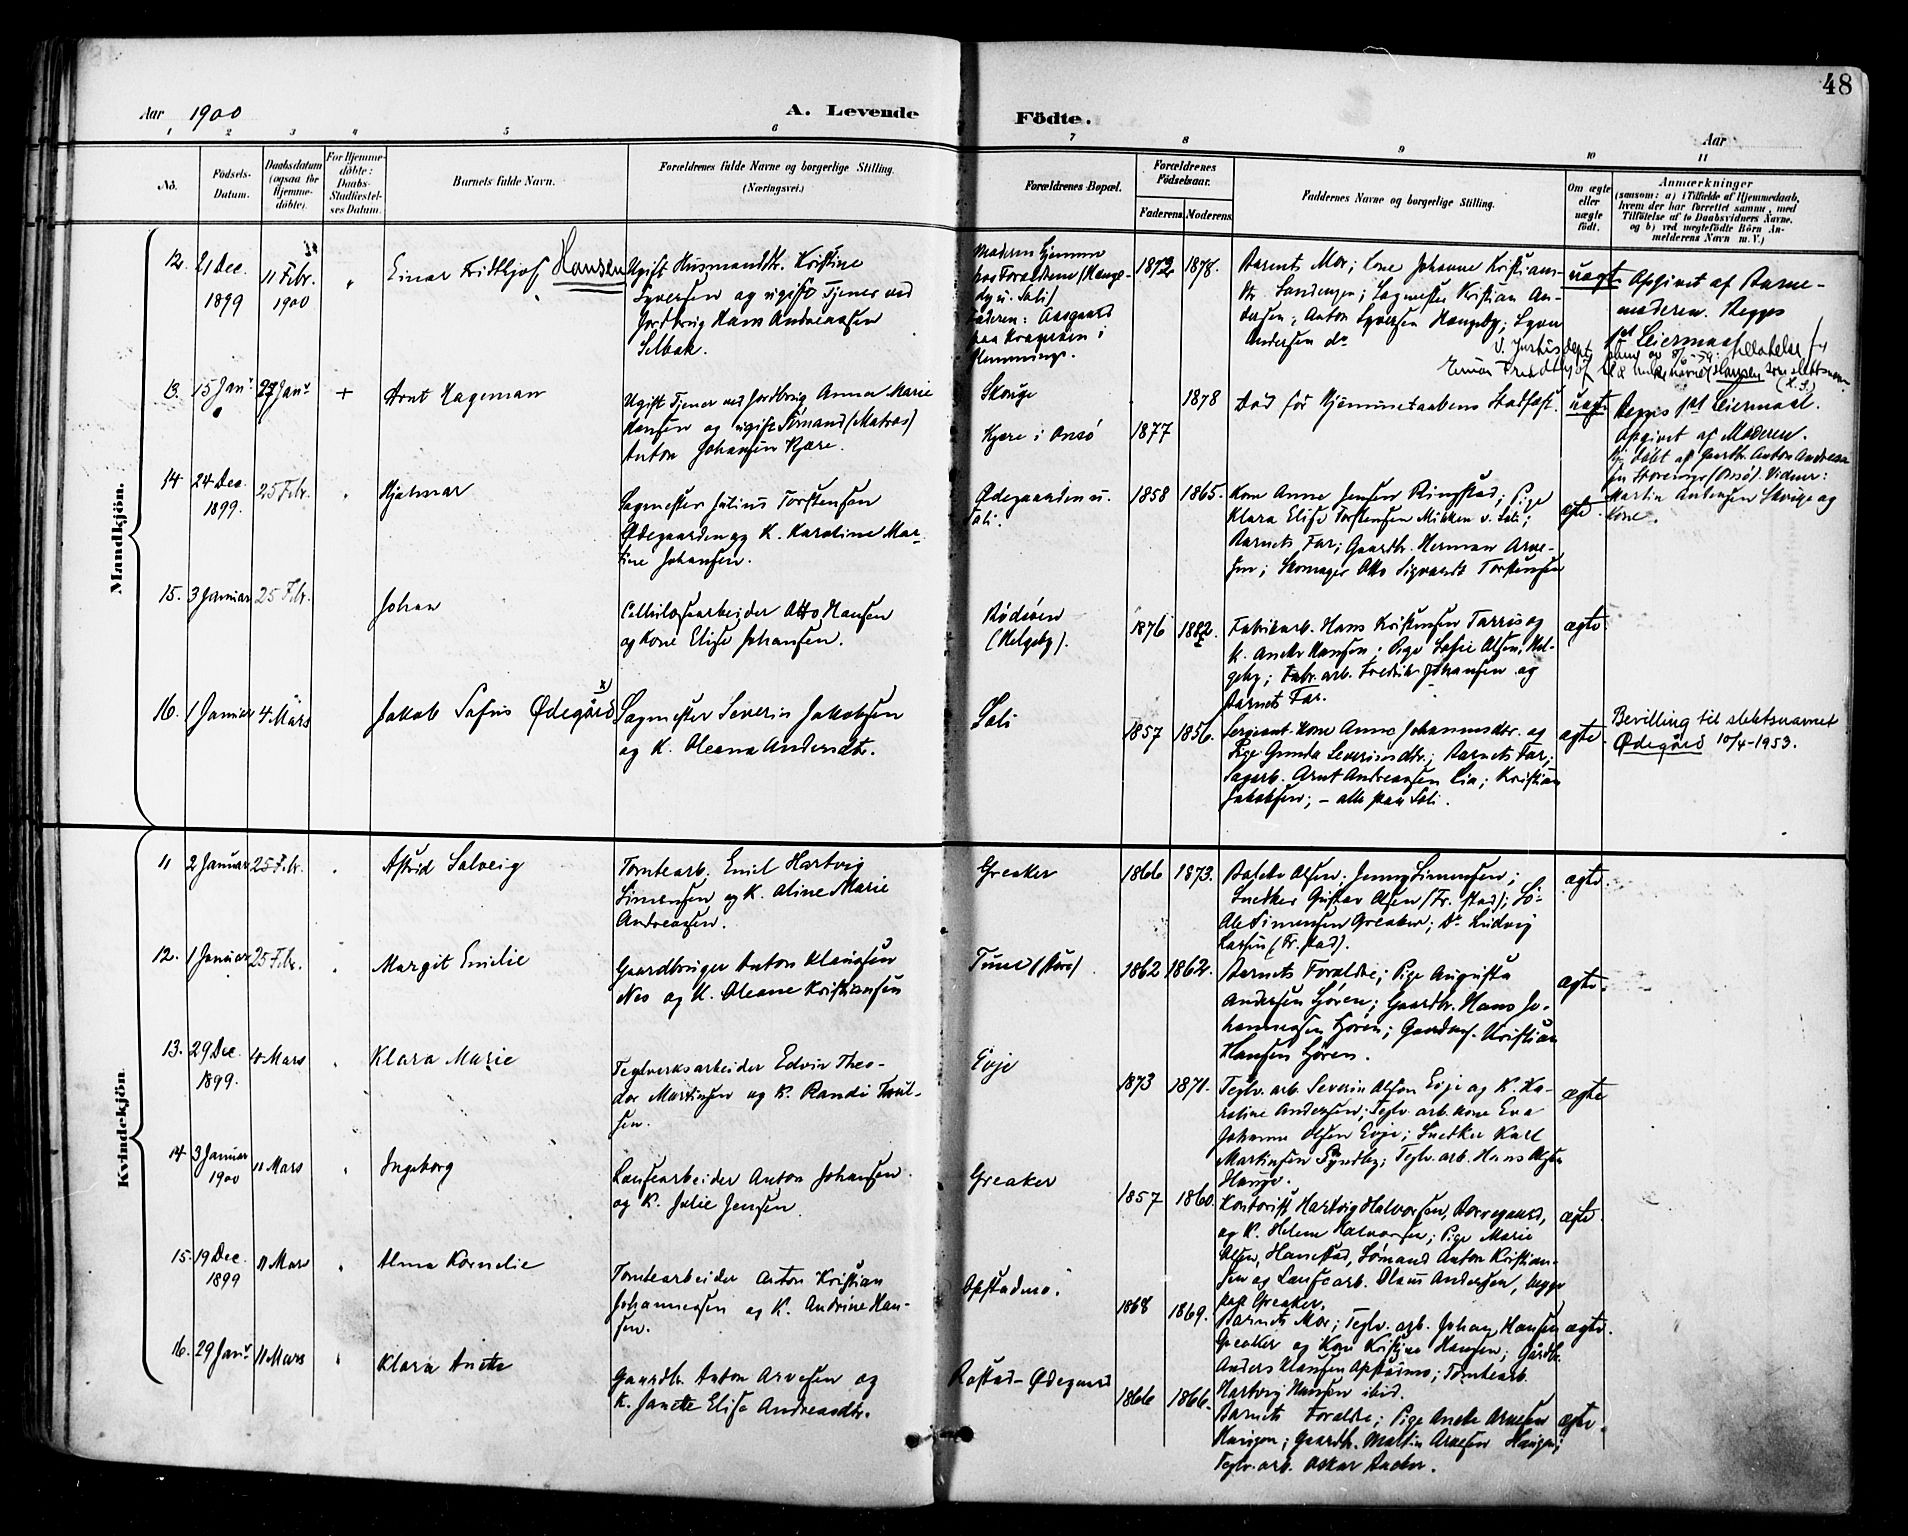 48
Aar 1900
A. Levende Födte.
Aar
1 2 3 4 5 6 7 8 9 10 11
No.
Födsels-Datum.
Daabsdatum (ogsaa for Hjemme-döbte).
For Hjemme-döbte: Daabs-Stadfæstel-ses Datum.
Barnets fulde Navn.
Forældrenes fulde Navne og borgerlige Stilling.
(Næringsvei.)
Forældrenes Bopæl.
Forældrenes Födselsaar.
Faderens. Moderens.
Faddernes Navne og borgerlige Stilling.
Om ægte eller uægte födt.
Anmærkninger
(saasom: a) i Tilfælde af Hjemmedaab,
hvem der har forrettet samme, med
Tilföielse af to Daabsvidners Navne,
og b) ved uægtefödte Börn An-
melderens Navn m. V.)
Mandkjön.
12. 21 Dec. 1899
11 Febr. 1900
Einar Fridthjof Hansen
Ugift Husmandsdtr. Kristine
Syversen og ugift Tjener ved
Jordbrug Hans Andreassen
Selbak.
Moderen Hjemme
hos Forældrene
Faderen: Aasgaard
paa Krageröen i
1872 1878.
Barnets Mor; Kone Johanne Kristians-
dtr. Sandengen; Sagmester Kristian An-
dersen; Anton Syversen Haugeby;
Andersen do
uægte
Opgivet af Barne-
moderen. Begges
1ste Leiermaal
13. 15 Janr 27 Janr +
Arnt Hageman
Ugift Tjener ved Jordbrug Anna Marie
Hansen og ugift Sömand (Matros)
Anton Johansen Kjære.
Skouge
Kjære i Onsö
1877
1878
Död för Hjemmedaabens Stadfæst.
uægte
Begges 1st Leiermaal.
Opgivet af Moderen.
Hj. döbt af Gaardbr. Anton Andrea-
sen Storenge (Onsö). Vidner:
Martin Antonsen Skouge og
Kone.
14 24 Dec. 1899. 25 Febr.
Hjalmar
Sagmester Julius Torstensen
Ödegaarden og K. Karoline Mar-
tine Johansen.
Ödegaarden u.
Soli.
1858 1865.
Kone Anne Jensen Ringstad; Pige
Klara Elise Torstensen Mikken v. Soli;
Barnets Far; Gaardbr. Herman Arve-
sen; Skomager Otto Sigvardt Torstensen
ægte.
15. 3 Januar 25 Febr.
Johan
Cellulosearbeider Otto Hansen
og Kone Elise Johansen.
Rödsöen
(Helgeby).
1876 1882.
Fabrikarb. Hans Kristensen Tarris og
K. Anette Hansen; Pige Sofie Olsen, Hel-
geby; Fabr. arb. Fredrik Johansen og
Barnets Far.
ægte.
16. 1 Januar 4 Mars
Jakob Sofus Ödegård x)
Sagmester Severin Jakobsen
og K. Oleana Andersdtr.
Soli
1857 1856.
Sergeant-Kone Anne Johannesdtr. og
Pige Gunda Severinsdtr.; Barnets Far;
Sagarb. Arnt Andreassen Lia; Kristian
Jakobsen; – alle paa Soli.
ægte.
Bevilling til slektsnavnet
Ödegård 10/4-1953.
Kvindekjön.
11 2 Januar 25 Febr.
Astrid Solveig
Tomtearb. Emil Hartvig
Simensen og K. Aline Marie
Andreassen.
Greaker
1866 1873.
Olsen; Jenny Simensen;
Snedker Gustav Olsen (Fr. stad);
Ole Simensen Greaker; Do Ludvig
Larsen (Fr. stad).
ægte.
12. 1 Januar 25 Febr.
Margit Emilie
Gaardbruger Anton Klausen
Nes og K. Oleane Kristiansen
Tune
1862 1862.
Barnets Forældre; Pige Augusta
Andersen Hören; Gaardbr. Hans Jo-
hannessen Hören; Kristian
Hansen Hören.
ægte.
13. 29 Dec. 1899. 4 Mars
Klara Marie
Teglverksarbeider Edvin Theo-
dor Martinsen og K. Randi Paul-
sen.
Evje
1873 1871.
Teglv. arb. Severin Olsen Evje og K. Ka-
roline Andersen; Teglv. arb. kone Eva
Johanne Olsen Evje; Snedker Karl
Martinsen Sundby; Teglv. arb. Hans Olsen
Hauge.
ægte
14 3 Januar 1900 11 Mars
Ingeborg
Lausearbeider Anton Johansen
og K. Julie Jensen.
Greaker
1857 1860.
Kontorist Hartvig Halvorsen, Borregaard,
og K. Helene Halvorsen; Pige Marie
Olsen, Hannestad, Sömand Anton Kristian-
sen og Lausearb. Olaus Andersen, begge
paa Greaker.
ægte.
15. 19 Dec. 1899 11 Mars
Alma Kornelie
Tomtearbeider Anton Kristian
Johannessen og K. Andrine Han-
sen.
Opstadmo.
1868 1869.
Barnets Mor; Teglv. arb. Johan Hansen
Greaker og Kone Kristine Hansen; Gårdbr.
Anders Klausen Opstadmo; Tomtearb.
Hartvig Hansen ibid.
ægte.
16. 29 Janr 11 Mars
Klara Anette
Gaardbr. Anton Arvesen og
K. Janette Elise Andreasdtr.
Rostad-Ödegaard
1866 1866.
Barnets Forældre; Pige Anette Arvesen
Haugen; Gaardbr. Martin Arvesen Haugen;
Teglv. arb. Oskar
ægte.